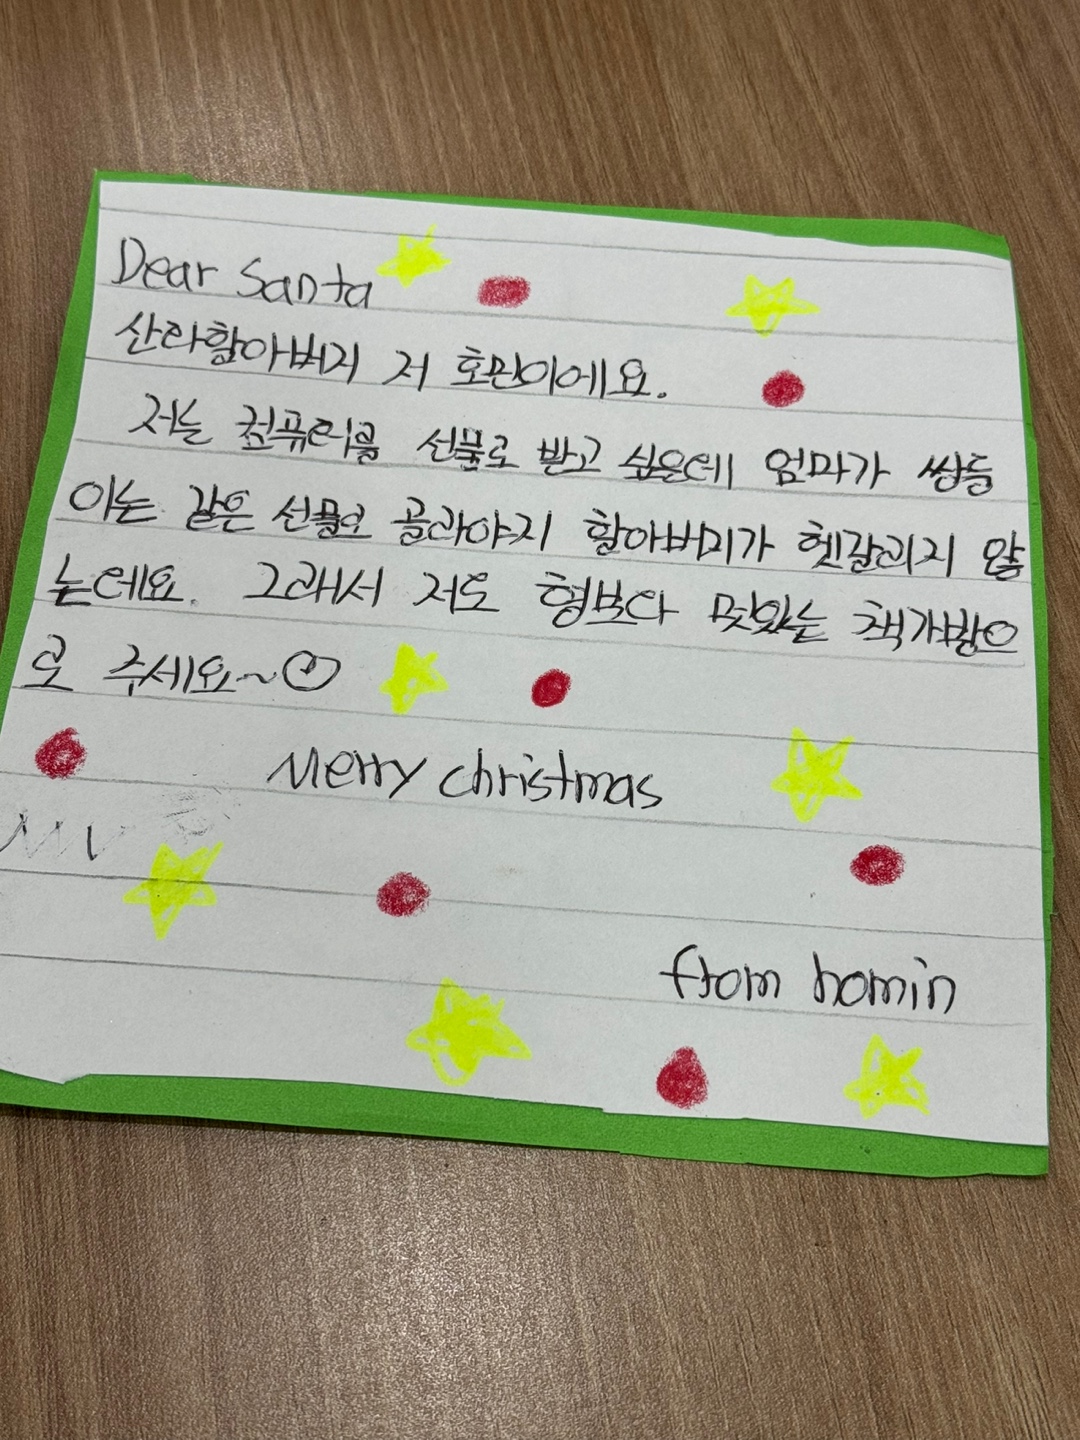 Dear Santa
산타할아버지 저 호민이에요.
저는 컴퓨터를 선물로 받고 싶은데 엄마가 쌍둥
이는 같은 선물로 골라야지 할아버지가 헷갈리지 않
는데요. 그래서 저도 형보다 멋있는 책가방으
로 주세요~
Merry christmas
from homin